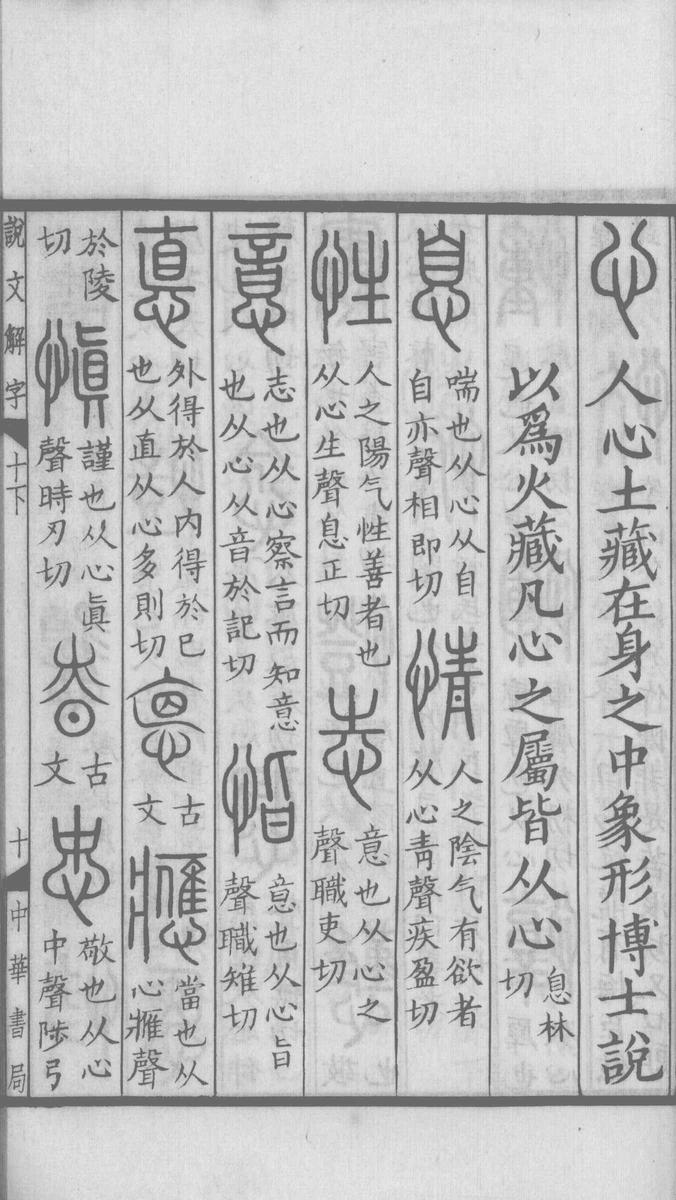 心 人心土藏在身之中象形博士說
以爲火藏凡心之屬皆从心息林切
息 喘也从心从自自亦聲相即切 情 人之陰气有欲者从心靑聲疾盈切
性 人之陽气性善者也从心生聲息正切 志 意也从心之聲職吏切
意 志也从心察言而知意也从心从音於記切 恉 意也从心旨聲職雉切
悳 外得於人内得於已也从直从心多則切 𢛳 古文 應 當也从心䧹聲
於陵切 愼 謹也从心眞聲時刃切 㥲 古文 忠 敬也从心中聲陟弓
說文解字 十下 十 中華書局